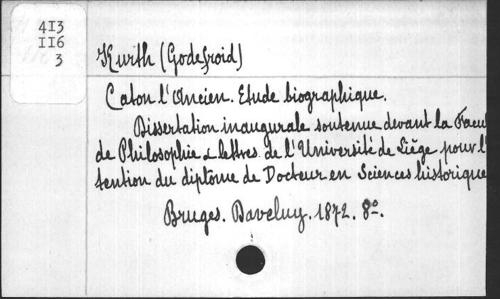 413
II6
3
Kurth (Godefroid)
Caton l'Ancien. Etude biographique.
Dissertation inaugurale soutenue devant la Facul
de Philosophie & lettres de l'Université de Liége pour l'
tention du diplôme de Docteur en Sciences historique
Bruges. Daveluy. 1872. 8º.